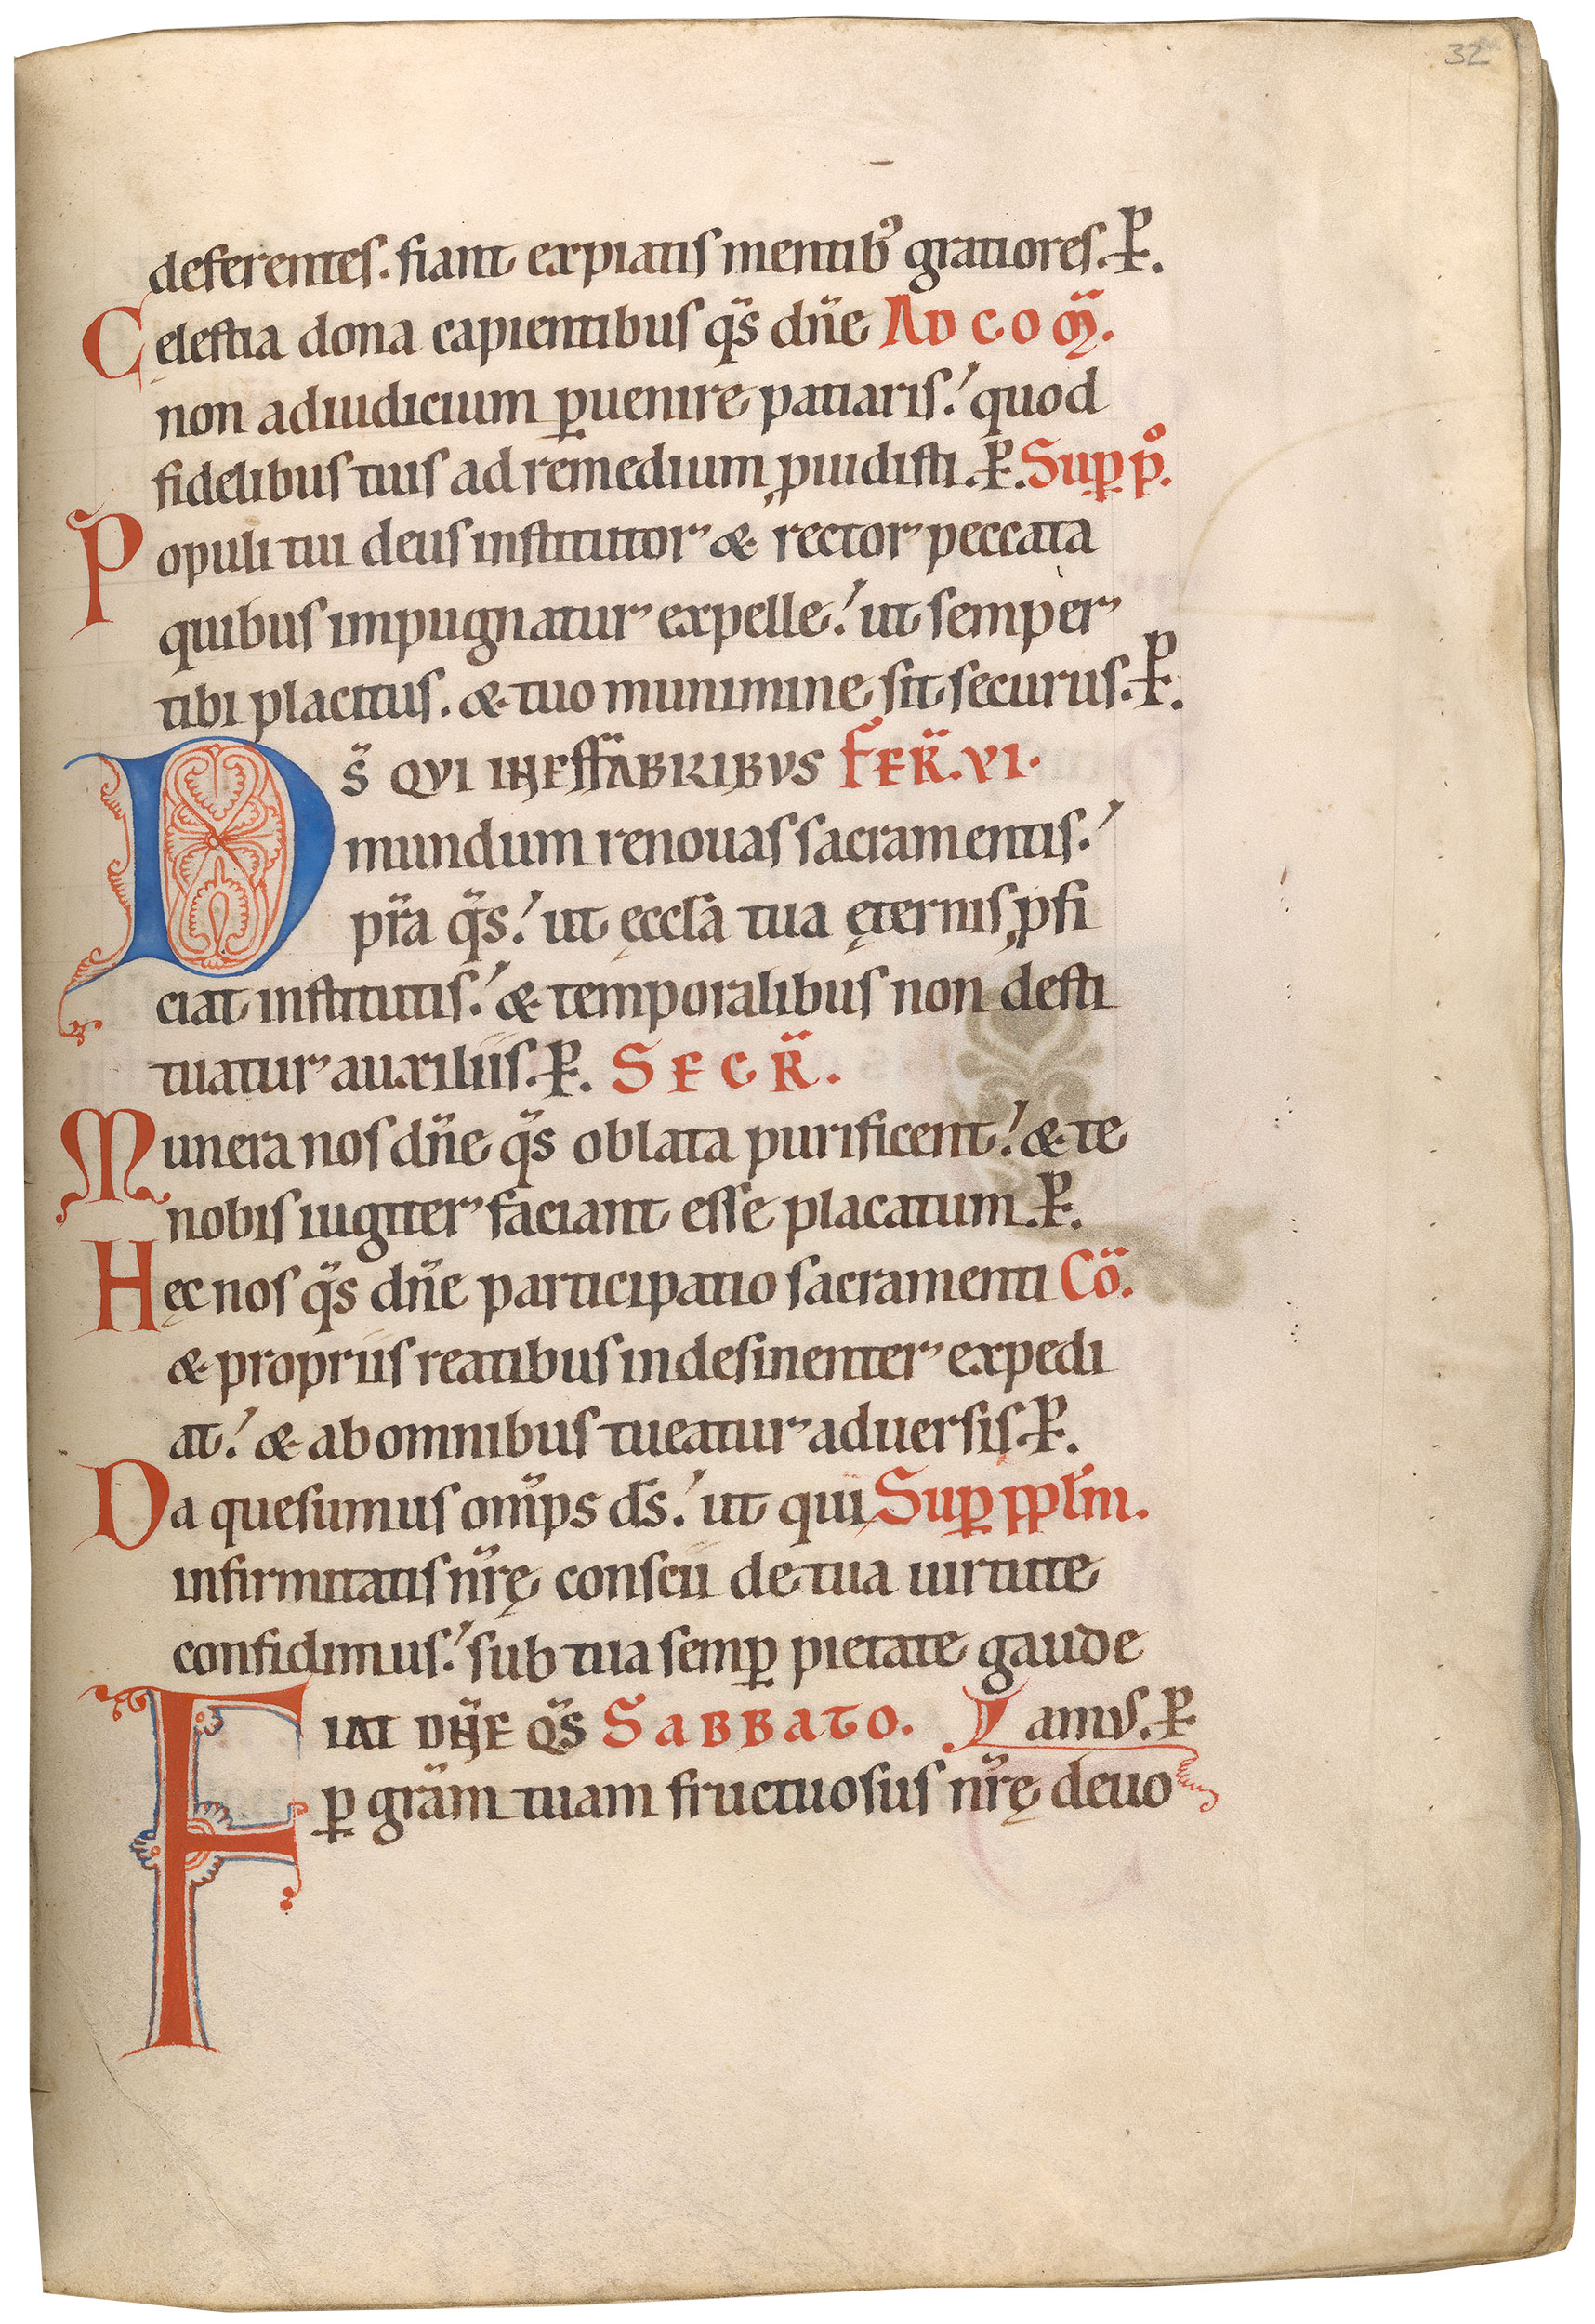 32
deferentes. fiant expiatis mentib᾽ gratiores. P.
Celestia dona capientibus q̄s dn̄e AD COM̄.
non adiudicium ꝑuenire patiaris. quod
fidelibus tuis ad remedium ꝓuidisti. P. Suꝑ pº.
Populi tui deus institutor & rector peccata
quibus impugnatur expelle. ut semper
tibi placitus. & tuo munimine sit securus. P.
Ds̄ QVI INEFFABRIBVS FER̄. VI.
mundum renouas sacramentis.
pr̄a q̄s. ut ęccłā tua ęternis ꝓfi
ciat institutis. & temporalibus non desti
tuatur auxiliis. P. SECR̄.
Munera nos dn̄e q̄s oblata purificent. & te
nobis iugiter faciant esse placatum. P.
Hęc nos q̄s dn̄e participatio sacramenti Cō.
& propriis reatibus indesinenter expedi
at. & ab omnibus tueatur aduersis. P.
Da quesumus om̄ps ds̄. ut qui Suꝑ ppłm.
infirmitatis nr̄ę conscii de tua uirtute
confidimus. sub tua semꝑ pietate gaude
FIAT DN̄E Q̄S SABBATO. amus. P.
ꝑ grām tuam fructuosus nr̄ę deuo